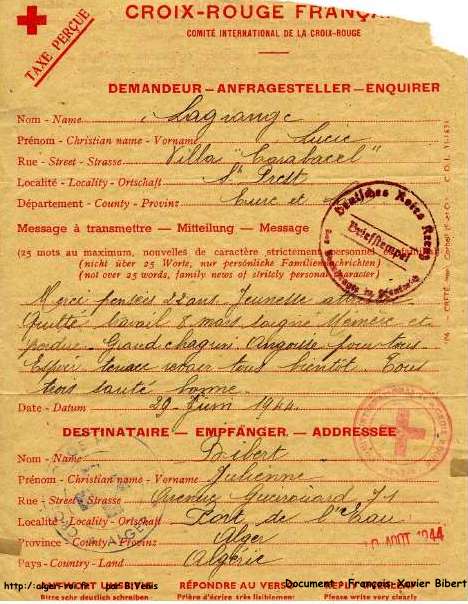 CROIX-ROUGE FRANÇA
COMITÉ INTERNATIONAL DE LA CROIX-ROUGE
TAXE PERÇUE
DEMANDEUR — ANFRAGESTELLER — ENQUIRER
Nom - Name Lagrange
Prénom - Christian name - Vorname Lucie
Rue - Street - Strasse Villa "Carabacel"
Localité - Locality - Ortschaft St Prest
Département - County - Provinz Eure et
Message à transmettre — Mitteilung — Message
(25 mots au maximum, nouvelles de caractère strictement personnel
(nicht über 25 Worte, nur persönliche Familiennachrichten)
(not over 25 words, family news of strictly personal character)
Deutsches Rotes Kreuz
Briefstempel
Merci pensées 22 ans. Jeunesse
Quitté travail 8 mois soigné Mémère et
perdue. Grand chagrin. Angoisse pour tous
Espoir tenace revoir tous bientôt. Tous
trois santé bonne.
Date - Datum 29 Juin 1944
DESTINATAIRE — EMPFÄNGER — ADDRESSEE
Nom - Name Bibert
Prénom - Christian name - Vorname Julienne
Rue - Street - Strasse Avenue Guerouard 71
Localité - Locality - Ortschaft Fort de l'Eau
Province - County - Provinz Alger
AOUT 1944
Pays - Country - Land Algérie
ANTWORT UMSEITIG RÉPONDRE AU VERSO
Bitte sehr deutlich schreiben Prière d'écrire très lisiblement Prière write very clearly
Document : François Xavier Bibert